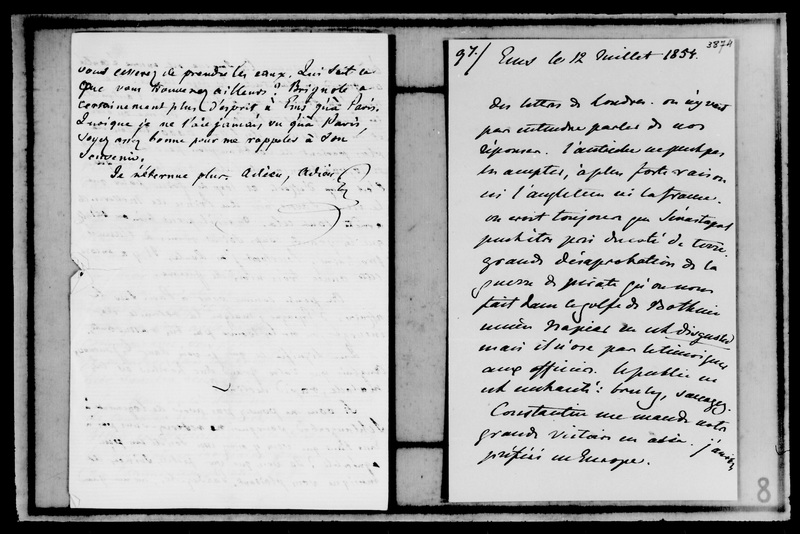 vous cesserez de prendre les eaux. Qui sait ce
que vous trouverez ailleurs ? Brignole a
certainement plus d'esprit à Ems qu'à Paris.
Quoique je ne l'aie jamais vu qu'à Paris,
soyez assez bonne pour me rappeler à son
souvenir.
Je n'éternue plus. Adieu, Adieu
3874
97./ Ems le 12 Juillet 1854.
des lettres de Londres. on n'y veut
pas entendre parler de nos
réponses. l'Autriche ne peut pas
accepter, à plus forte raison
ni l'angleterre ni la france.
on croit toujours que Sévastopol
peut être pris du coté de terre.
grande désaprobation de la
guerre de pirate qu'on nous
fait dans le golfe de Bothnie
Napier en est disgusted
mais il n'ose pas le témoigner
aux officiers. le public en
est enchanté : brulez, saccagez.
Constantin me mande notre
grande victoire en asie. j'aurais
préféré en Europe.
8